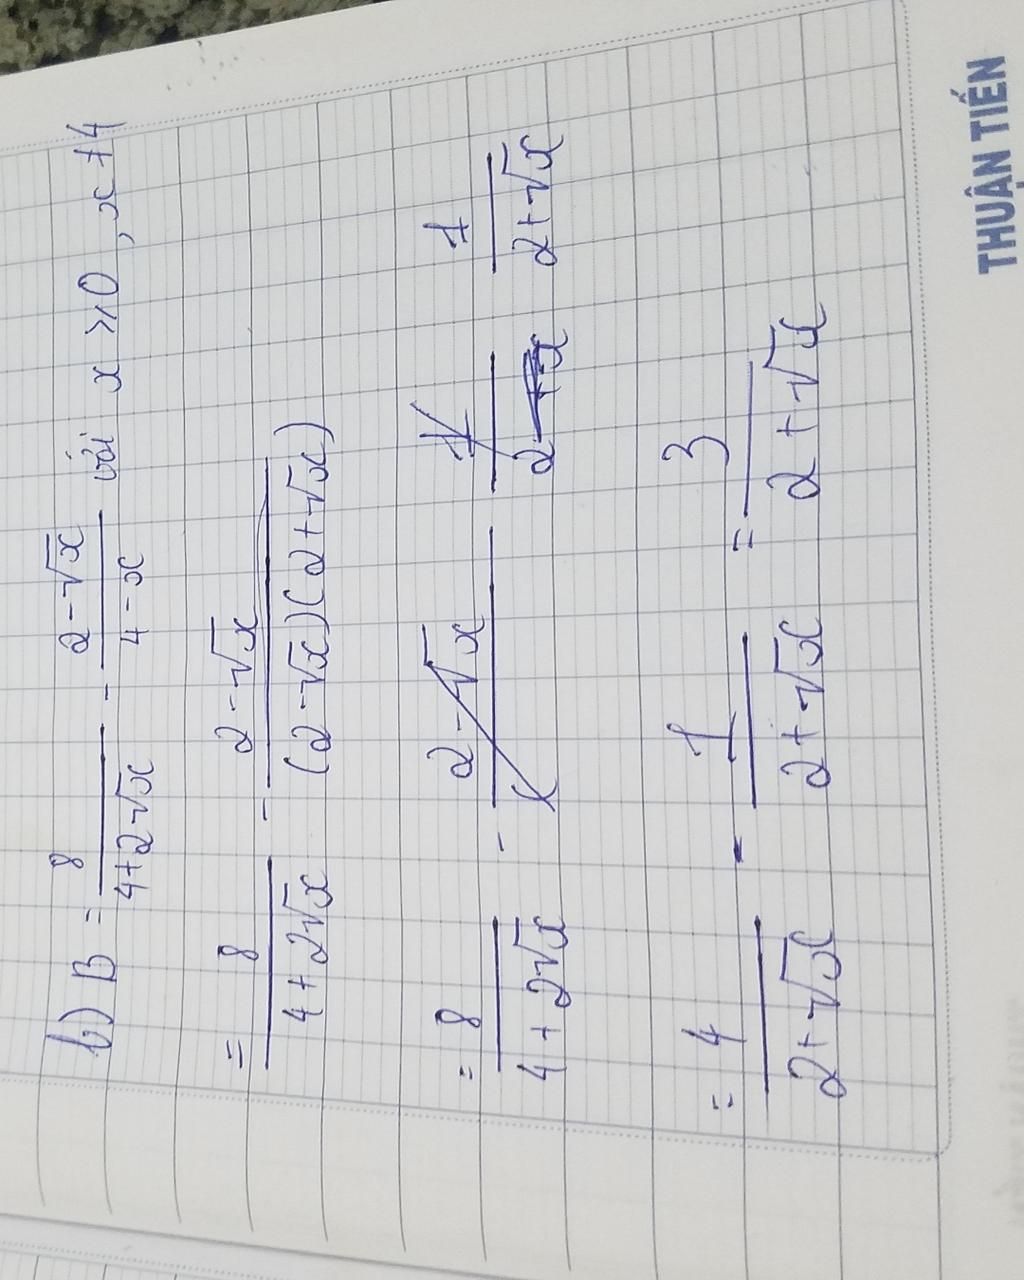 b) B = 8/(4+2√x) - (2-√x)/(4-x) với x ≥ 0, x ≠ 4
= 8/(4+2√x) - (2-√x)/((2-√x)(2+√x))
= 8/(4+2√x) - 1/(2+√x)
= 4/(2+√x) - 1/(2+√x) = 3/(2+√x)
THUẬN TIẾN